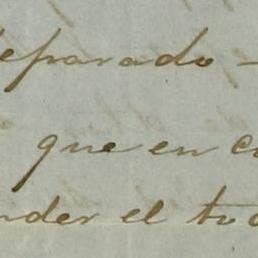 separado -
que en c
nder el tod